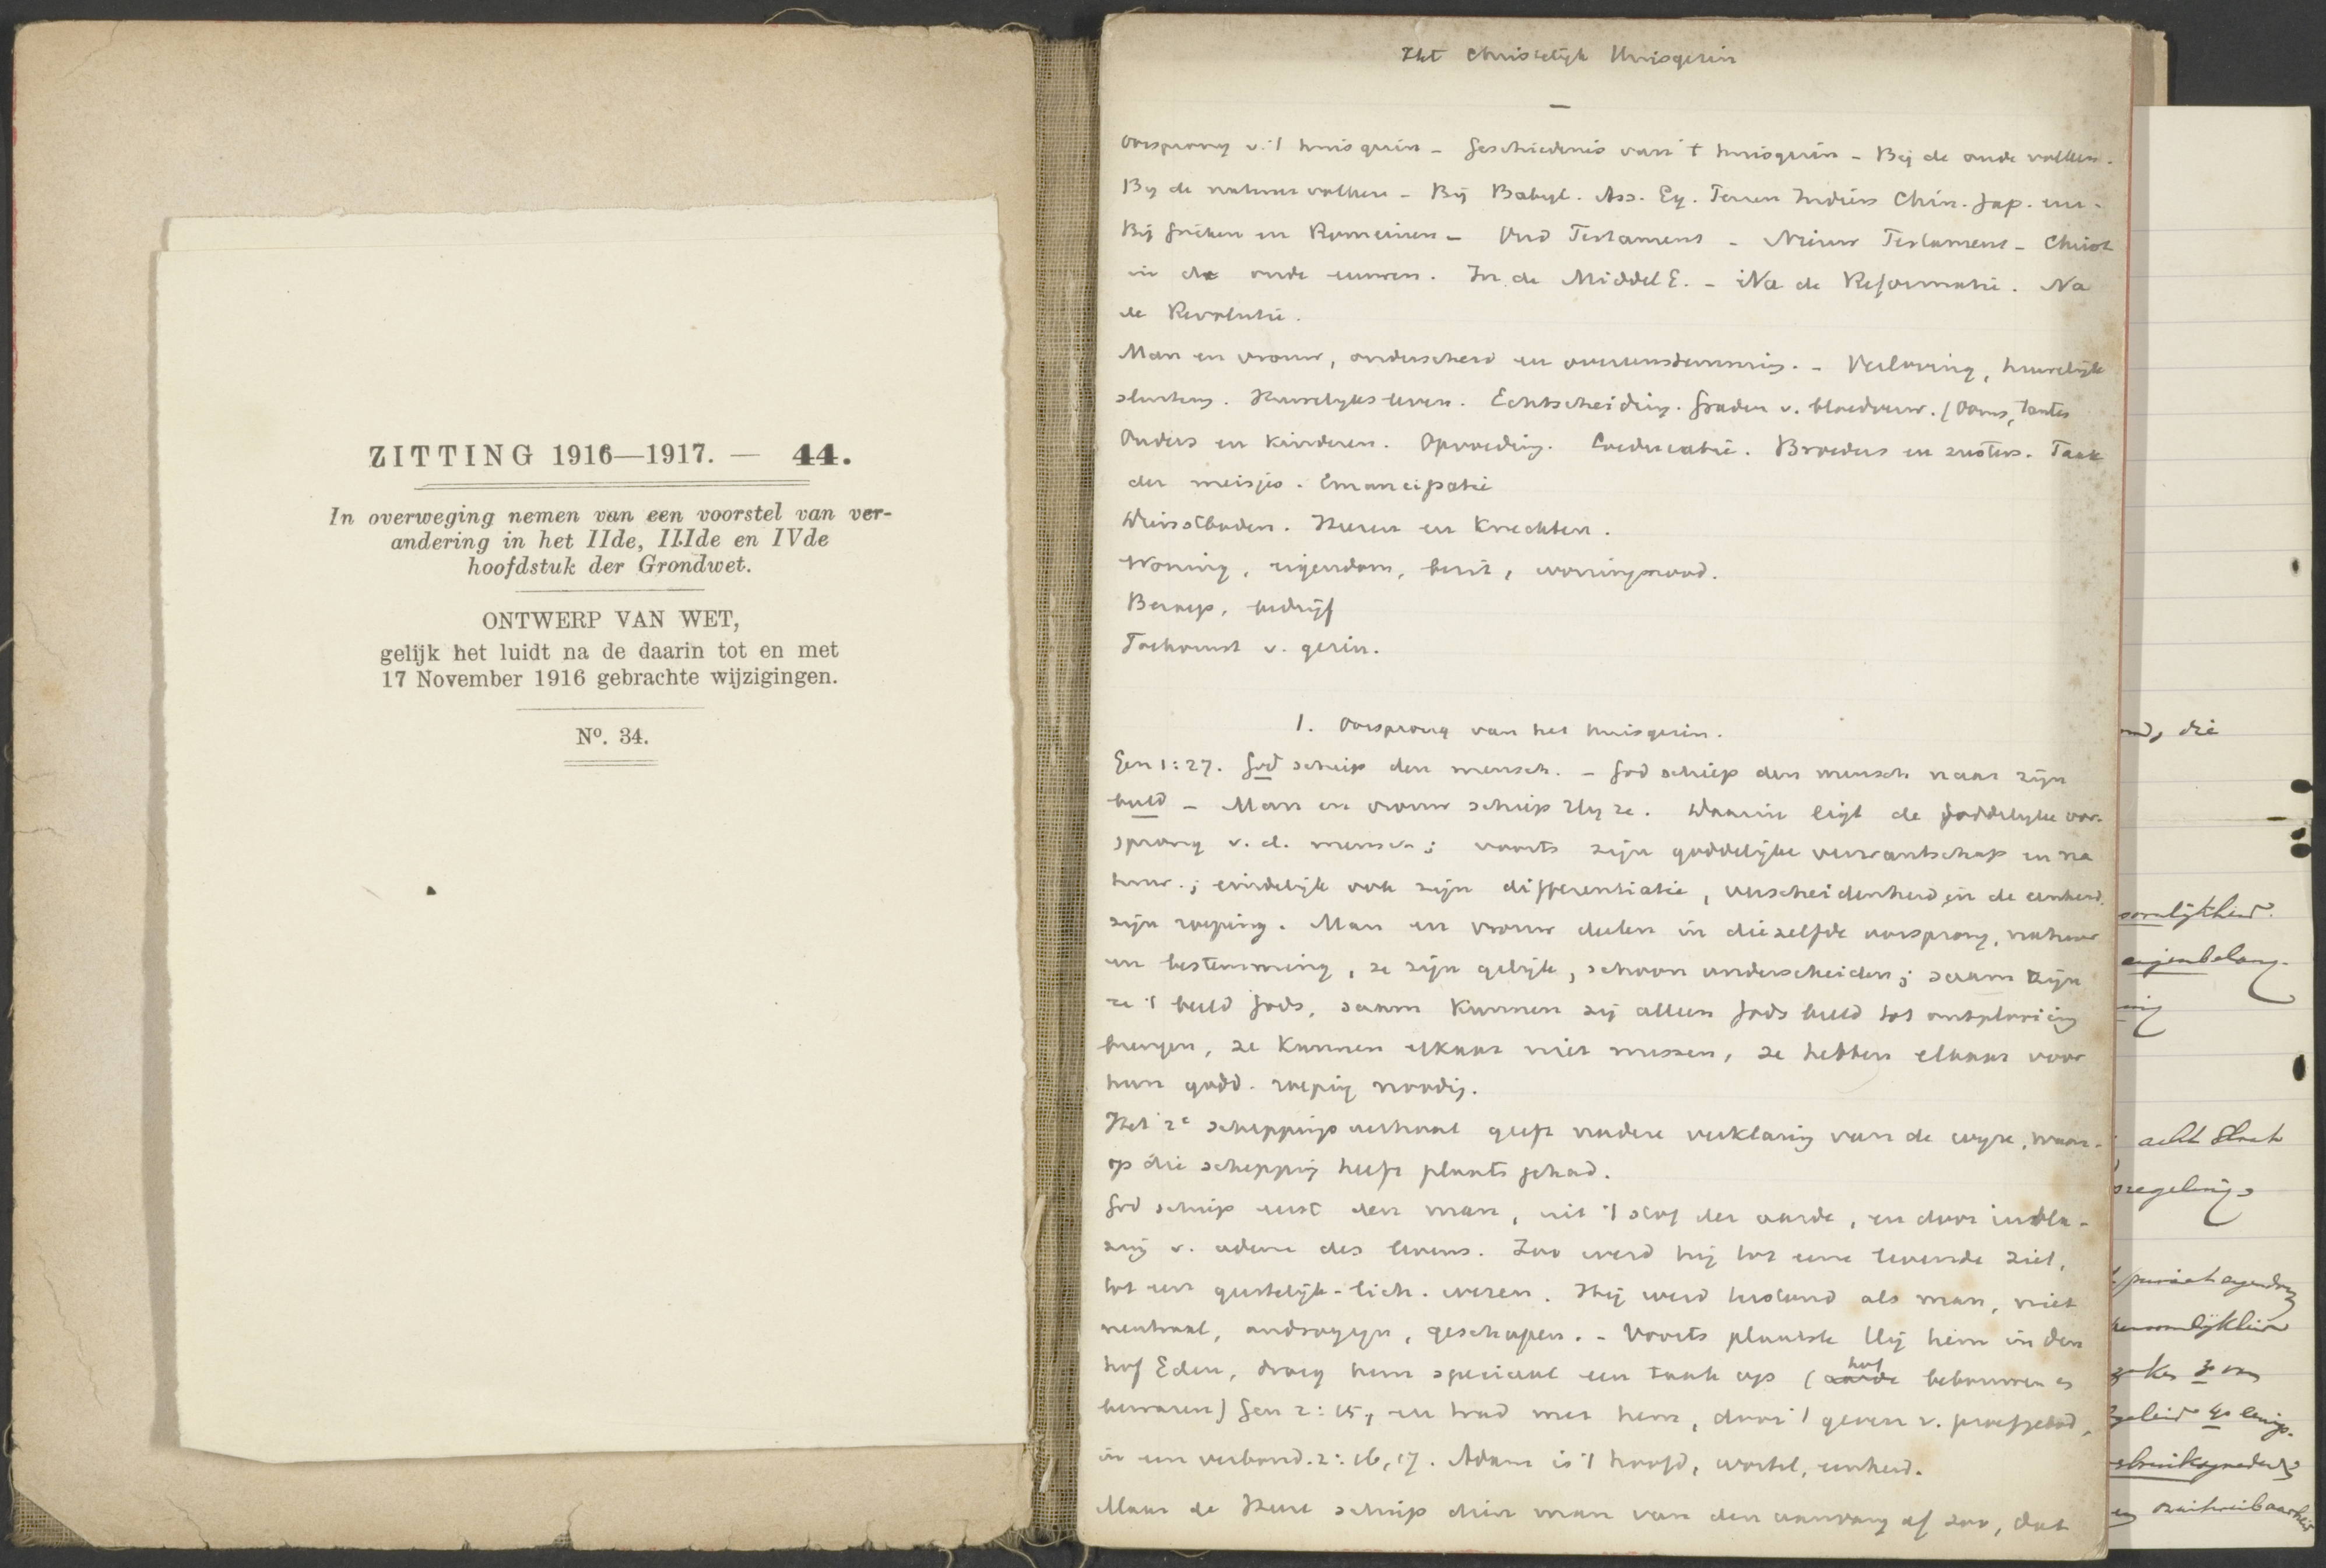 ZITTING 1916—1917. — 44.
In overweging nemen van een voorstel van ver-
andering in het IIde, IIIde en IVde
hoofdstuk der Grondwet.
ONTWERP VAN WET,
gelijk het luidt na de daarin tot en met
17 November 1916 gebrachte wijzigingen.
No. 34.
Het Christelijk Huisgezin
Oorsprong v. 't huisgezin - Geschiedenis van 't huisgezin - Bij de oude volken.
Bij de natuurvolken - Bij Babyl. Ass. Eg. Perzen Indiërs Chin. Jap. enz.
Bij Grieken en Romeinen - Oud Testament - Nieuw Testament - Christ
in de oude eeuwen. In de Middel E. - Na de Reformatie. Na
de Revolutie.
Man en vrouw, onderscheid en overeenstemming. - Verloving, huwelijk
sluiting. Huwelijksleven. Echtscheiding. Graden v. bloedverw. (Ooms, tantes
Ouders en kinderen. Opvoeding. Coeducatie. Broeders en zusters. Taak
der meisjes. Emancipatie
Dienstboden. Heeren en Knechten.
Woning, eigendom, bezit, woningnood.
Beroep, bedrijf
Toekomst v. gezin.
1. Oorsprong van het huisgezin.
Gen 1:27. God schiep den mensch. - God schiep den mensch naar zijn
beeld - Man en vrouw schiep Hij ze. Daarin ligt de goddelijke oor-
sprong v. d. mensch; voorts zijn goddelijke verwantschap en na
tuur.; eindelijk ook zijn differentiatie, verscheidenheid in de eenheid,
zijn roeping. Man en vrouw deelen in diezelfde oorsprong, natuur
en bestemming, ze zijn gelijk, schoon onderscheiden; saam zijn
ze 't beeld Gods, saam kunnen zij alleen Gods beeld tot ontplooiing
brengen, ze kunnen elkaar niet missen, ze hebben elkaar voor
hun godd. roeping noodig.
Het 2e scheppingsverhaal geeft nadere verklaring van de wijze, waar-
op die schepping heeft plaats gehad.
God schiep eerst den man, uit 't stof der aarde, en door inbla-
zing v. adem des levens. Zoo werd hij tot eene levende ziel,
tot een geestelijk-lich. wezen. Hij werd bestand als man, niet
neutraal, androgyn, geschapen. - Voorts plaatste Hij hem in den
hof Eden, droeg hem speciaal een taak op (aarde hof bebouwen en
bewaren) Gen 2:15, en trad met hem, door 't geven v. proefgebod,
in een verbond. 2:16,17. Adam is 't hoofd, wortel, eenheid.
Maar de Heere schiep dien man van den aanvang af zoo, dat
die
eigenbelang
acht Staat
regeling